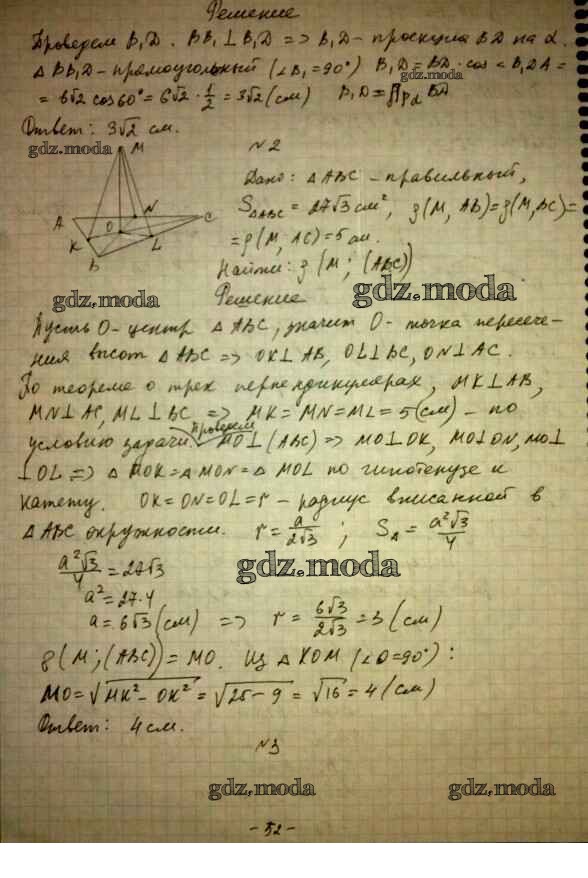 Решение
Проведем B₁D. BB₁⊥B₁D => B₁D - проекция BD на α.
△BB₁D - прямоугольный (∠B₁=90°) B₁D = BD·cos∠B₁DA =
= 6√2 cos60° = 6√2 · 1/2 = 3√2 (см) B₁D = Пр_α BD
gdz.moda
Ответ: 3√2 см.
gdz.moda
M
A
N
C
K
O
L
B
N2
Дано: △ABC - правильный,
S△ABC = 27√3 см², ρ(M, AB)=ρ(M,BC)=
=ρ(M; AC)=5 см.
Найти: ρ(M; (ABC))
gdz.moda
gdz.moda
Решение
Пусть O - центр △ABC, значит O - точка пересече-
ния высот △ABC => OK⊥AB, OL⊥BC, ON⊥AC.
По теореме о трех перпендикулярах, MK⊥AB,
MN⊥AC, ML⊥BC => MK=MN=ML=5(см) - по
условию задачи. Проведем MO⊥(ABC) => MO⊥OK, MO⊥ON, MO⊥
⊥OL => △MOK=△MON=△MOL по гипотенузе и
катету. OK=ON=OL=r - радиус вписанной в
△ABC окружности. r = a/2√3 ; S△ = a²√3/4
a²√3/4 = 27√3
gdz.moda
a² = 27·4
a = 6√3 (см) => r = 6√3/2√3 = 3 (см)
ρ(M;(ABC)) = MO. Из △KOM (∠O=90°):
MO = √MK² - OK² = √25-9 = √16 = 4 (см)
Ответ: 4 см.
N3
gdz.moda
gdz.moda
- 52 -